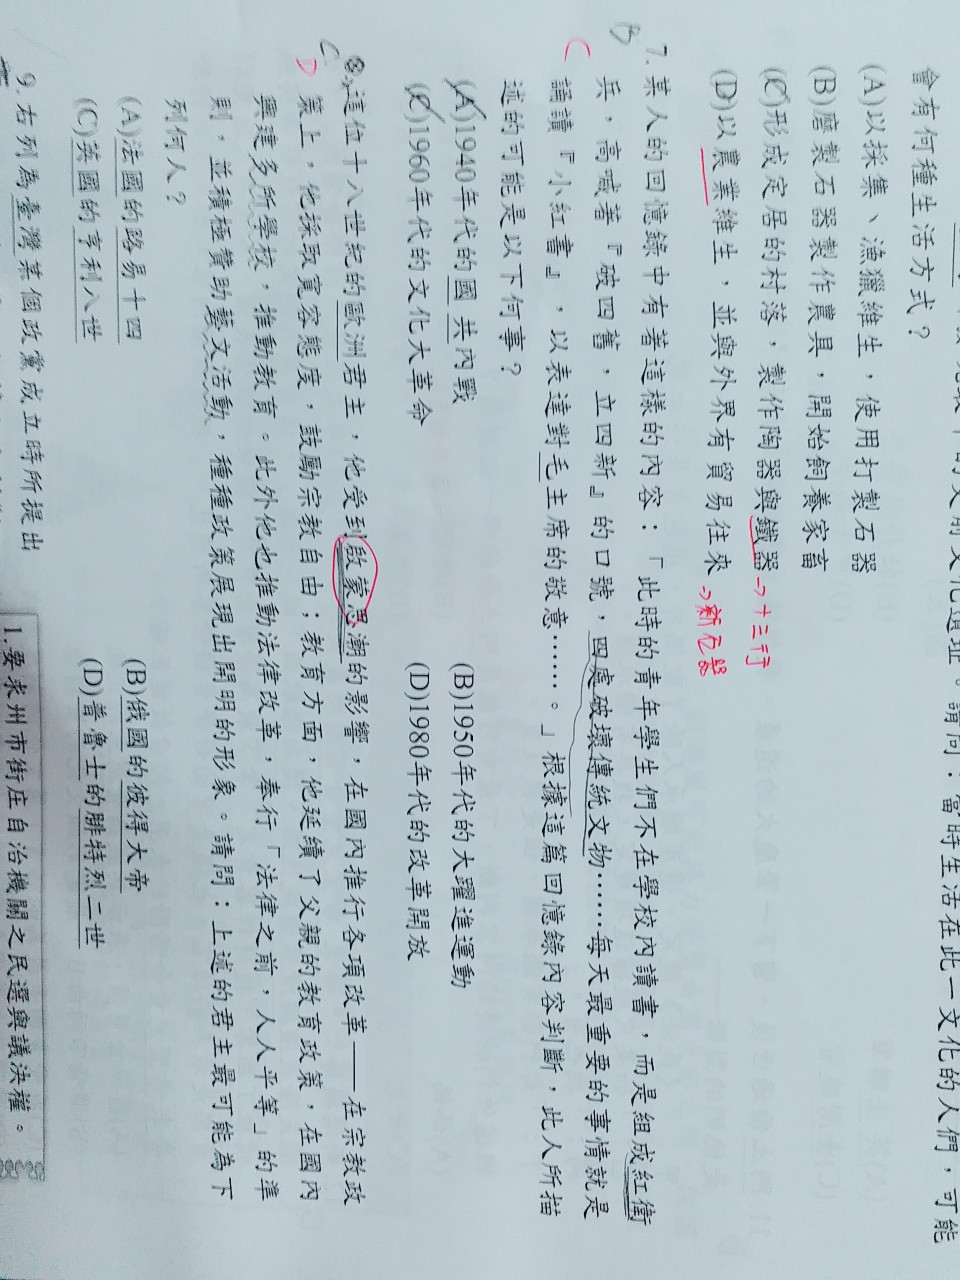 會有何種生活方式？
(A)以採集、漁獵維生，使用打製石器
(B)磨製石器製作農具，開始飼養家畜
(C)形成定居的村落，製作陶器與鐵器→十三行
(D)以農業維生，並與外界有貿易往來→新石器
B
7. 某人的回憶錄中有著這樣的內容：「此時的青年學生們不在學校內讀書，而是組成紅衛
C
兵，高喊著『破四舊，立四新』的口號，四處破壞傳統文物……每天最重要的事情就是
誦讀『小紅書』，以表達對毛主席的敬意……。」根據這篇回憶錄內容判斷，此人所描
述的可能是以下何事？
(A)1940年代的國共內戰 (B)1950年代的大躍進運動
(C)1960年代的文化大革命 (D)1980年代的改革開放
C
8. 這位十八世紀的歐洲君主，他受到啟蒙思潮的影響，在國內推行各項改革——在宗教政
D
策上，他採取寬容態度，鼓勵宗教自由；教育方面，他延續了父親的教育政策，在國內
興建多所學校，推動教育。此外他也推動法律改革，奉行「法律之前，人人平等」的準
則，並積極贊助藝文活動，種種政策展現出開明的形象。請問：上述的君主最可能為下
列何人？
(A)法國的路易十四 (B)俄國的彼得大帝
(C)英國的亨利八世 (D)普魯士的腓特烈二世
9. 右列為臺灣某個政黨成立時所提出
1.要求州市街庄自治機關之民選與議決權。